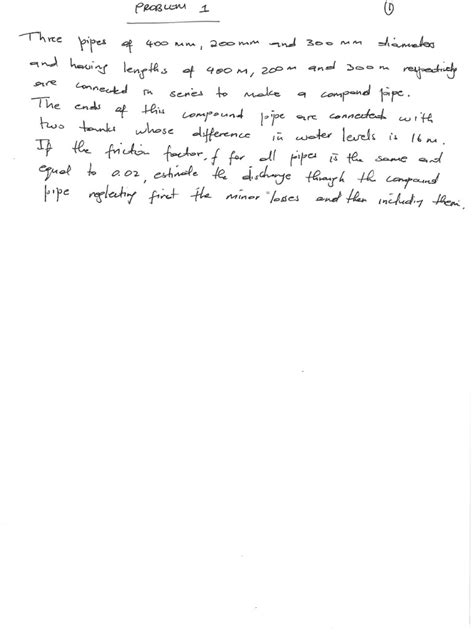 PROBLEM 1
①
Three pipes of 400 mm, 200 mm and 300 mm diameters
and having lengths of 400 m, 200 m and 300 m respectively
are connected in series to make a compound pipe.
The ends of this compound pipe are connected with
two tanks whose difference in water levels is 16 m.
If the friction factor, f for all pipes is the same and
equal to 0.02, estimate the discharge through the compound
pipe neglecting first the minor losses and then including them.